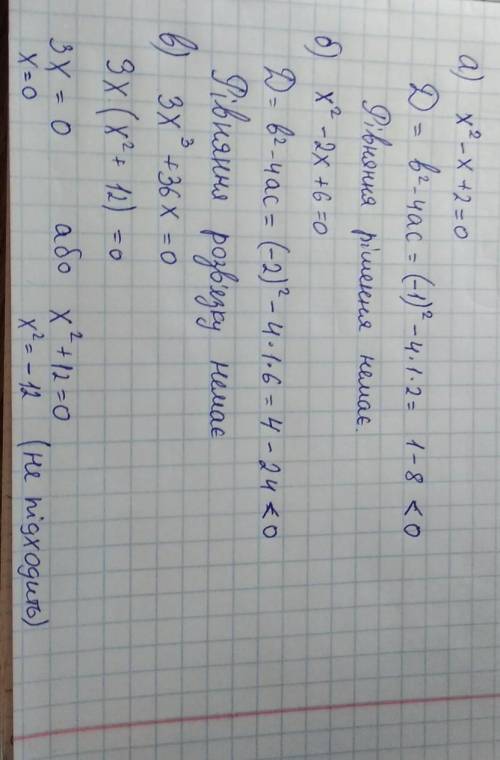 а) x² - x + 2 = 0
D = b² - 4ac = (-1)² - 4·1·2 = 1 - 8 < 0
Рівняння рішення немає.
б) x² - 2x + 6 = 0
D = b² - 4ac = (-2)² - 4·1·6 = 4 - 24 < 0
Рівняння розв'язку немає
в) 3x³ + 36x = 0
3x (x² + 12) = 0
3x = 0 або x² + 12 = 0
x = 0 x² = -12 (не підходить)